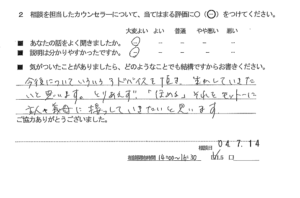 2 相談を担当したカウンセラーについて、当てはまる評価に○（㊀）をつけてください。
大変よい よい 普通 やや悪い 悪い
■ あなたの話をよく聞きましたか。
■ 説明は分かりやすかったですか。
■ 気がついたことがありましたら、どのようなことでも結構ですからお書きください。
今後についていろいろアドバイスを頂き、生かしていきたい
と思います。とりあえず、「ほめる」それをモットーに
主人や義母に接していきたいと思います。
ご協力ありがとうございました。
相談日 04.7.14
相談時間 14:00～14:30